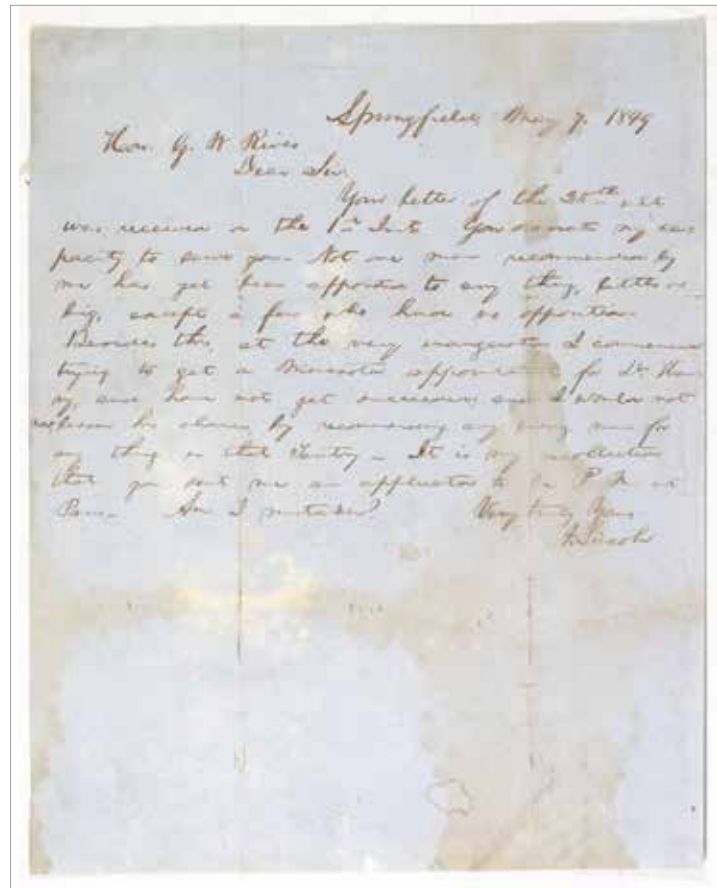 Springfield, May 7. 1849
Hon. G. W Rives
Dear Sir
Your letter of the 25th ult
was received on the 1st Inst You overrate my cap-
pacity to serve you. Not one man recommended by
me has yet been appointed to any thing, little or
big, except a few who had no opposition
Besides this, at the very inauguration I commenced
trying to get a Minnesota appointment for Dr. Hen-
ry, and have not yet succeeded; and I would not
now lessen his chances by recommending any living man for
any thing in that Teritory. It is my recollection
that you sent me an application to be P. M at
Paris. Am I mistaken? Very truly Yours
A. Lincoln